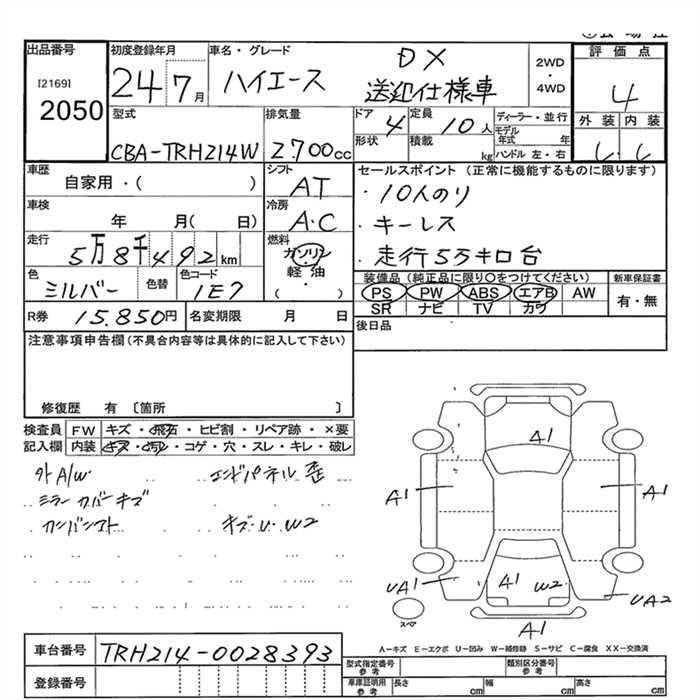 出品番号
[2169]
2050
初度登録年月
24 7月
車名・グレード
ハイエース DX
送迎仕様車
2WD
・
4WD
評価点
4
外装 内装
型式
CBA-TRH214W
排気量
2700cc
ドア
4
形状
定員
10人
積載
kg
ディーラー・並行
モデル年式 年
ハンドル 左・右
車歴
自家用・( )
シフト
AT
車検
年 月( 日)
冷房
A・C
走行
5万8千492km
燃料
ガソリン
・
軽油
( ・ )
色
シルバー
色替
色コード
1E7
R券 15.850円
名変期限 月 日
セールスポイント (正常に機能するものに限ります)
・10人のり
・キーレス
・走行5万キロ台
装備品(純正品に限り○をつけてください)
PS PW ABS エアB AW
SR ナビ TV カワ
新車保証書
有・無
後日品
注意事項申告欄(不具合内容等は具体的に記入して下さい)
修復歴 有〔箇所 〕
検査員記入欄
FW キズ・飛石・ヒビ割・リペア跡・×要
内装 キズ・汚れ・コゲ・穴・スレ・キレ・破レ
外A/W エンドパネル歪
ミラーカバーキズ
カンバンアト キズ・U・W2
A1
A1
A1
UA1
A1
W2
UA2
A1
スペア
A-キズ E-エクボ U-凹み W-補修跡 S-サビ C-腐食 XX-交換済
車台番号 TRH214-0028393
登録番号
型式指定番号 参考
類別区分番号 参考
車庫証明用 参考
長さ cm
幅 cm
高さ cm